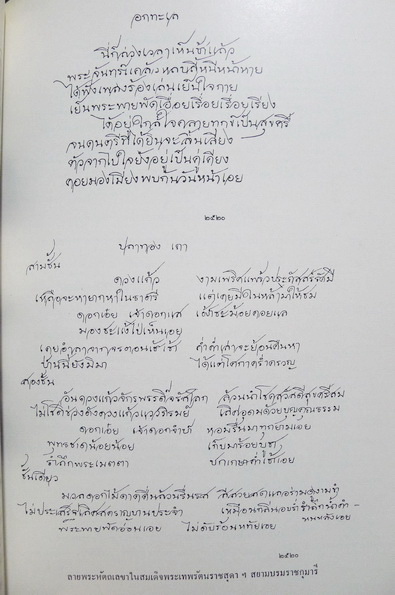 ออกทะเล
นี่ก็ล่วงเวลาเห็นช้าแล้ว
พระจันทร์แคล้วหลบลี้หนีหน้าหาย
ได้ฟังเพลงร้องเล่นเย็นใจกาย
เย็นพระพายพัดเอื่อยเรื่อยเรื่อยเรียง
ได้อยู่ใกล้ใจคลายทุกข์เป็นสุขศรี
จนดนตรีที่ได้ยินจะสิ้นเสียง
ตัวจากไปใจยังอยู่เป็นคู่เคียง
คอยมองเมียงพบกันวันหน้าเอย
๒๕๒๐
ปลาทอง เถา
สามชั้น
ดวงแก้ว งามเพริศแพร้วประภัสสร์รัศมี
เหลือจะหายากหาในธาตรี แต่เคยมีในหล้ามาให้ชม
ดอกเอ๋ย เจ้าดอกแส เฝ้าชะแง้คอยแล
มองชะแง้ไปเห็นเอย
เคยอำลาจากจรตอนเช้าเช้า ค่ำค่ำเล่าจะย้อนคืนหา
ป่านนี้ยังมิมา ได้แต่โศกาคร่ำครวญ
สองชั้น
อันดวงแก้วจักรพรรดิ์จรัสโลก ล้วนนำโชคสวัสดิ์สรรค์สม
ไม่ไร้ช่วงดังดวงแก้วแวววิรมย์ เลิศอุดมด้วยบุญคุณธรรม
ดอกเอ๋ย เจ้าดอกจำปี หอมชื่นมาทุกยามเอย
พุทธชาดน้อยน้อย เก็บมาร้อยบูชา
รำลึกพระเมตตา ปกเกษค่ำเช้าเอย
ชั้นเดียว
มวลดอกไม้ดาดดื่นล้วนรื่นรส สีสวยสดแลอร่ามงามขำ
ไม่ประเสริฐเลิศสคราญบานประจำ เหมือนกลิ่นอบร่ำ
พระพายพัดอ่อนเอย ไม่ดับร้อนหทัยเอย
๒๕๒๐
ลายพระหัตถเลขาในสมเด็จพระเทพรัตนราชสุดา ฯ สยามบรมราชกุมารี